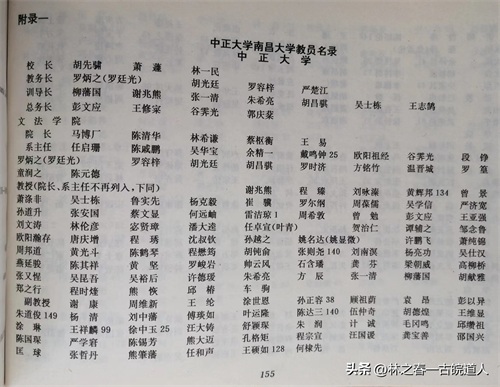 附录一
中正大学南昌大学教员名录
中正大学
校长 胡先骕 萧蘧 林一民
教务长 罗炳之(罗廷光) 胡光廷 罗容梓 严楚江
训导长 柳藩国 谢兆熊 张一清 朱希亮 胡昌骐 吴士栋 王志鹄
总务长 彭文应 王修寀 谷霁光 郭庆棻
文法学院
院长 马博厂 陈清华 林希谦 蔡枢衡 王易
系主任 任启珊 陈戚鹏 吴华宝 余精一 戴鸣钟25 欧阳祖经 谷霁光 段铮
罗炳之(罗廷光) 罗容梓 胡光廷 胡昌骐 罗时济 方铭竹 温晋城 罗篁
童润之 陈元德
教授(院长、系主任不再列入,下同) 谢兆熊 程臻 刘咏溱 黄辉邦134 曾景
萧涤非 吴士栋 鲁实先 杨克毅 崔骥 罗尔纲 周葆儒 吴学信 严济宽
孙道升 张安国 蔡文显 何远岫 雷洁琼1 周希敦 曾勉 彭文应 王亚强
刘文涛 林伦彦 宓贤璋 潘大逵 任卓宣(叶青) 贺治仁 谭辅之 邹念鲁
欧阳瀚存 唐庆增 程琇 沈叔钦 孙越之 姚名达(姚显微) 许鹏飞 萧纯锦
周邦道 黄光斗 陈鹤琴 程懋筠 胡钝俞 张则尧140 刘南溟 杨亮功 吴仕汉
燕延陵 陈其祥 黄坚 罗峻岩 帅云风 石含璠 龚芬 梁朝威 高柳桥
张又惺 吴昆吾 吴裕后 许德瑗 朱希亮 方辰 张一清 柳藩国 胡献雅
郑之行 程时煃 熊恢 邱椿 车驹
副教授 谢康 周维新 王纶 涂世恩 孙正容38 顾祖荫 袁昂 彭以异
朱道俊149 杨清 刘中藩 傅琰如 叶运隆 陈达三140 伍仲奇 胡德煌 王维显
涂琳 王祥麟99 徐中玉25 汪大铸 舒颖琛 朱洵 计诚 毛冈鸣 邱缵祖
陈国琛 严学宭 陈锡芳 熊大迈 孔格矩 程宗宣 汪国谖 龚宝善 邵国兴
匡球 张哲丹 熊肇藩 任和声 王硕如128 何棣先
155
头条 @林之眷一古皖道人